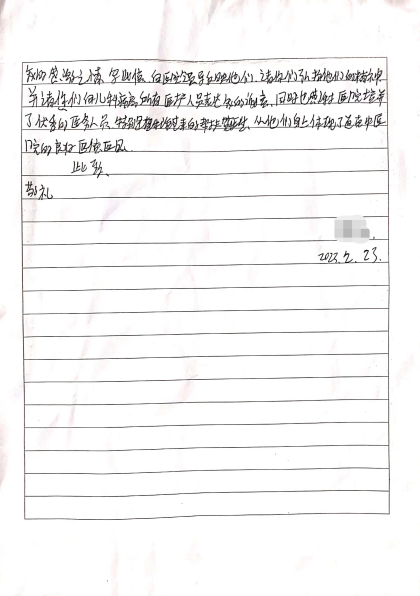 的感激之情,写此信,向医院领导反映他们,请你们弘扬他们的精神
并请你们向儿科病房所有医护人员表达我的谢意,同时也感谢医院培养
了优秀的医务人员,特别是 的 医生,从他们身上体现了 中医
院的良好医德医风。
此致
敬礼
2023.2.23.